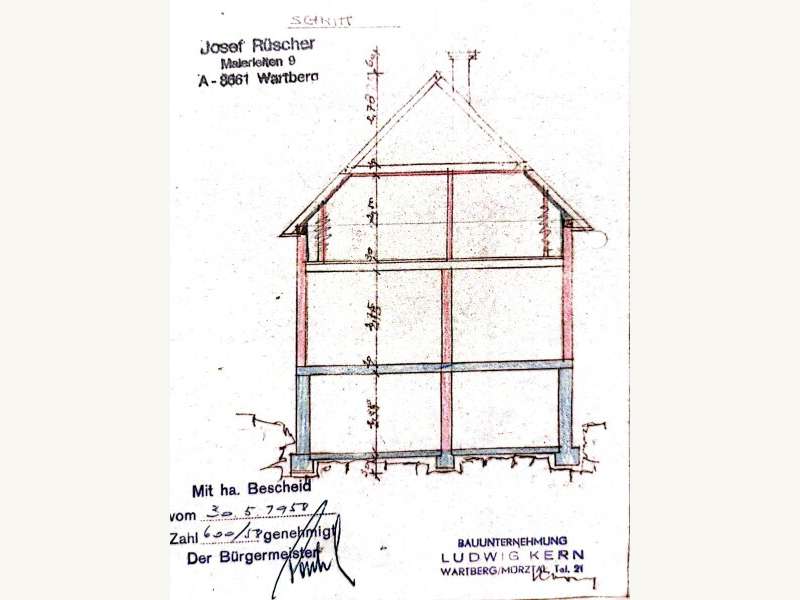 SCHNITT
Josef Rüscher
Maierleiten 9
A-8661 Wartberg
30
Mit ha. Bescheid
vom 30. 5. 1958
Zahl 600/58 genehmigt
Der Bürgermeister
BAUUNTERNEHMUNG
LUDWIG KERN
WARTBERG/MÜRZTAL, Tel. 21